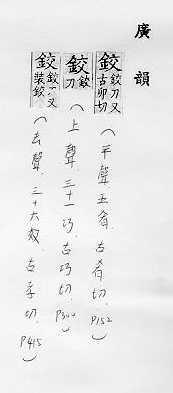 廣韻
鉸 鉸刀又古卯切 (平聲五肴. 古肴切. P152)
鉸 鉸刀 (上聲. 三十一巧. 古巧切. P300)
鉸 鉸刀又裝鉸 (去聲. 三十六效. 古孝切. P415)